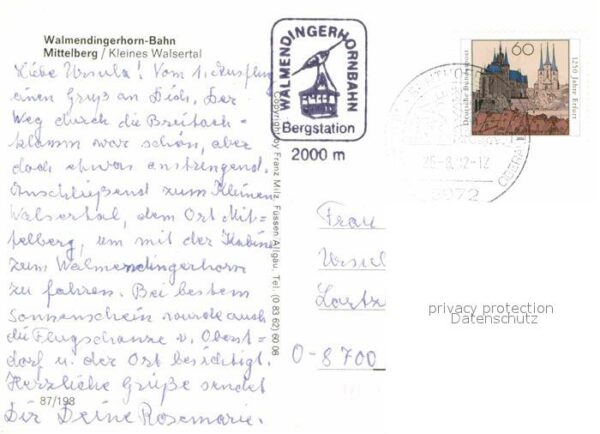 Walmendingerhorn-Bahn
Mittelberg / Kleines Walsertal
Liebe Ursula! Vom 1. Ausflug
einen Gruß an Dich. Der
Weg durch die Breitach=
klamm war schön, aber
doch etwas anstrengend.
Anschließend zum Kleinen
Walsertal, dem Ort Mit=
telberg, um mit der Kabine
zum Walmendingerhorn
zu fahren. Bei bestem
Sonnenschein wurde auch
die Flugschanze v. Oberst=
dorf u. der Ort besichtigt.
Herzliche Grüße sendet
Dir Deine Rosemarie.
87/198
Copyright by Franz Milz, Füssen Allgäu, Tel. (0 83 62) 60 08
WALMENDINGERHORNBAHN
Bergstation
2000 m
60
Deutsche Bundespost
1250 Jahre Erfurt
25-8.92-12
OBERST
8072
Frau
Ursul
Lortz
O-8700
privacy protection
Datenschutz